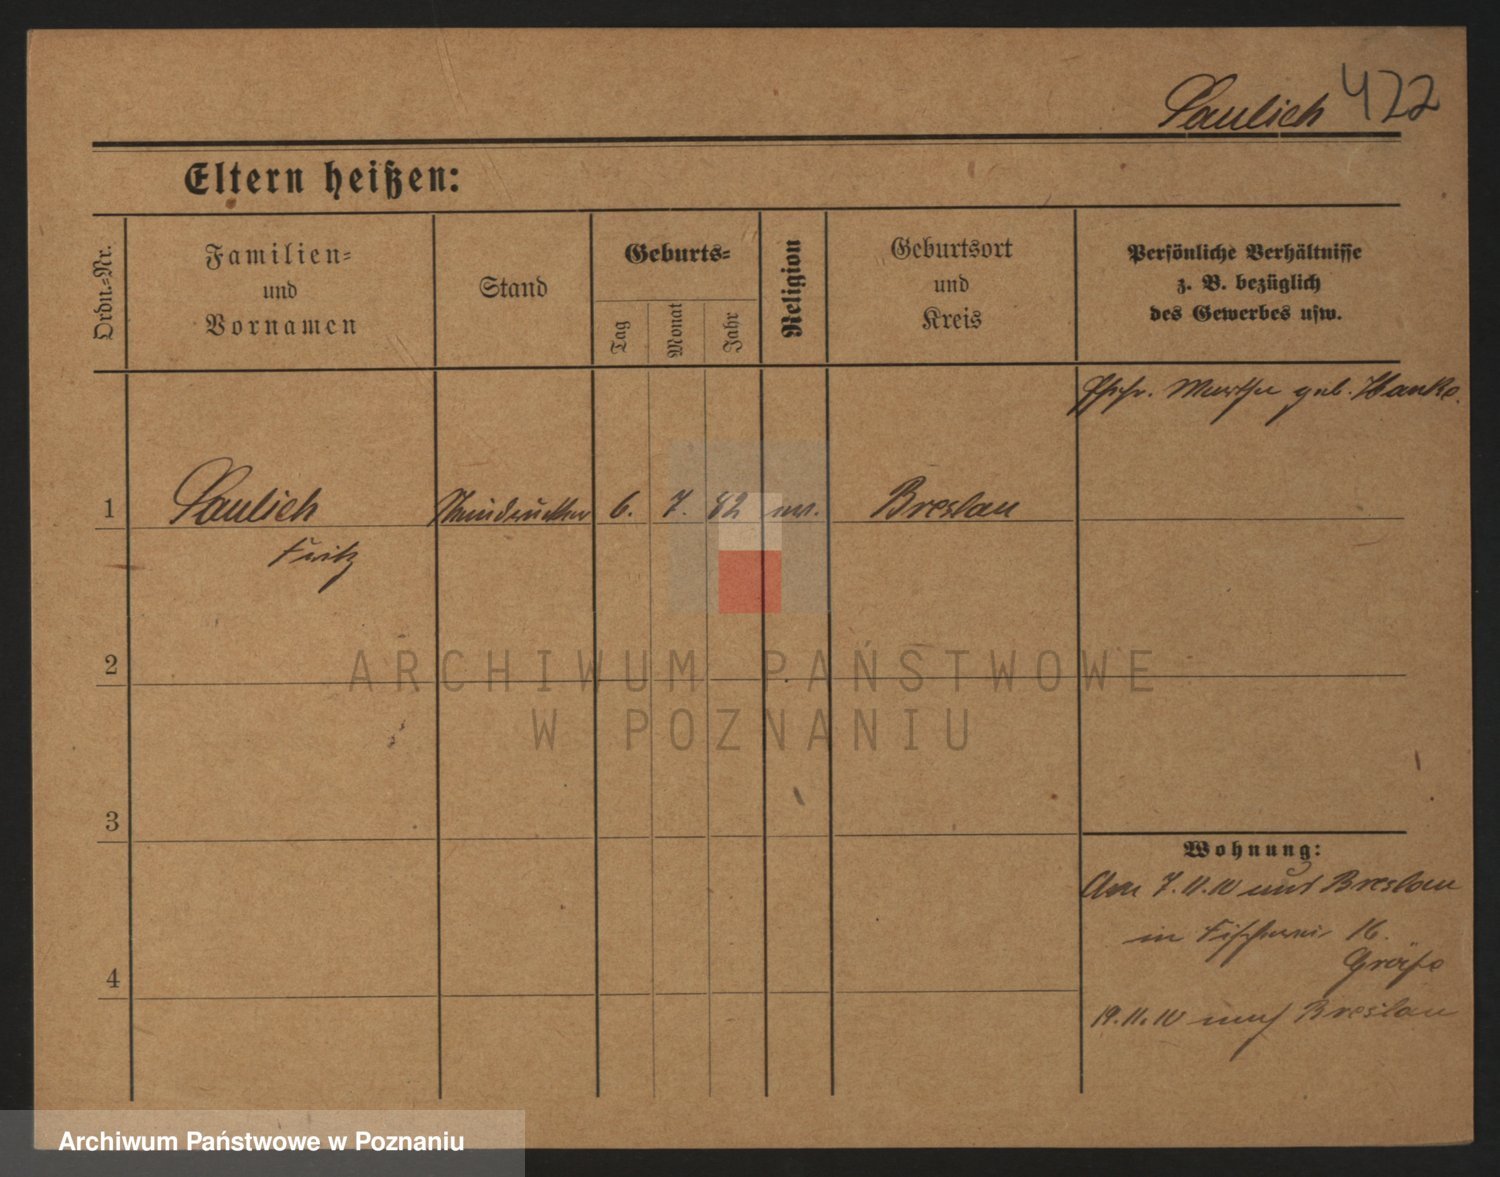 Paulich 422
Eltern heißen:
Ordn.-Nr.
Familien-
und
Vornamen
Stand
Geburts-
Tag
Monat
Jahr
Religion
Geburtsort
und
Kreis
Persönliche Verhältnisse
z. B. bezüglich
des Gewerbes usw.
Ehefr. Martha geb. Hanke.
1 Paulich Steindrucker 6. 7. 82 ev. Breslau
Fritz
2
3
4
Wohnung:
Am 7.11.10 aus Breslau
in Fischerei 16.
19.11.10 nach Breslau
ARCHIWUM PAŃSTWOWE
W POZNANIU
Archiwum Państwowe w Poznaniu